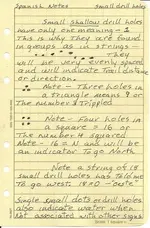 Spanish Notes Small drill holes
Small shallow drill holes
have only one meaning - 1
This is why they are found
in groups as in strings -
They
will be very evenly spaced
and will indicate Trail distance
or direction.
Note - Three holes in
a Triangle means 9 or
The number 3 Trippled
Note - Four holes in
a square = 16 or
The number 4 squared
Note - 16 = N and will be
an indicator To go North.
Note a string of 18
small drill holes has Told me
To go west. 18=O - "oeste"
Single small dots or drill holes
also indicate water when
Not associated with other signs